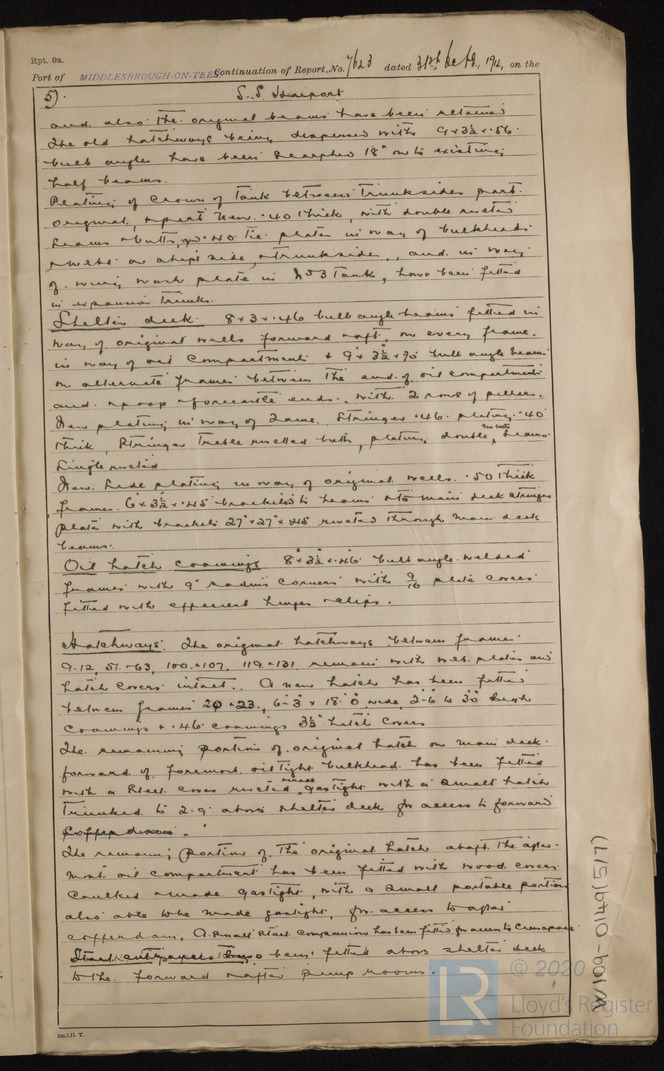 Rpt. 9a.
Port of MIDDLESBROUGH-ON-TEES Continuation of Report No. 7623 dated 31st 1921, on the
5). S.S.
and also the original beams have been retained
the old hatchways being dispensed with 9 x 3½ x .56
bulb angles have been scarphed 18" on to existing
half beams.
Plating of Crown of Tank between Trunksides part
original, & part new .40 thick, with double riveted
seams & butts, .40 Tie plates in way of bulkheads
& webs on ships side, & trunksides, and in way
of wing wash plate in No 3 Tank, have been fitted
in expansion trunks.
Shelter deck. 8 x 3 x .46 bulb angle beams fitted in
way of original wells forward & aft, on every frame.
in way of oil compartments & 9" x 3½ x bulb angle beams
on alternate frames between the end of oil compartments
and & poop & forecastle ends, with 2 rows of pillars.
New plating in way of same, Stringer .46 plating .40
thick, Stringer treble riveted butts, plating double, seams
single riveted
New side plating in way of original wells .50 thick
frames 6" x 3½ x .45 bracketed to beams & to main deck stringer
plate with brackets 27" x 27" x .45 riveted through main deck
beams.
Oil hatch coamings 8" x 3½ x .46 bulb angle welded
frames with 9" radius corners with 9/16 plate covers
fitted with efficient hinges & clips.
Hatchways. The original hatchways between frames
9-12, 51-63, 100-107, 119-131 remain with web plates and
hatch covers intact. A new hatch has been fitted
between frames 20 & 23, 6-3 x 18'0 wide, 2-6 to 30 high
coamings & .46 coamings 3½" hatch covers
The remaining portion of original hatch on main deck
forward of foremost oiltight bulkhead has been fitted
with a steel cover riveted made gastight with a small hatch
trunked to 2-9 above shelter deck for access to forward
cofferdam.
The remaining portion of the original hatch abaft the after-
most oil compartment has been fitted with wood covers
caulked & made gastight, with a small portable portion
also able to be made gastight, for access to after
cofferdam, A small steel companion has been fitted
been fitted above shelter deck
to the forward & after pump rooms.
W109-0149(5/7)
© 2020
LR
Lloyd's Register
Foundation